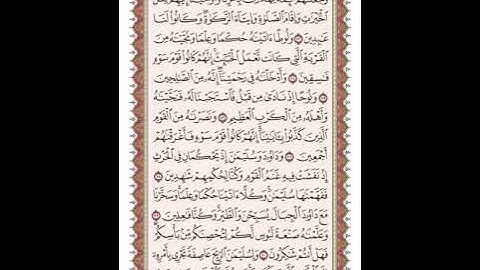 ٱلۡخَيۡرَٰتِ وَإِقَامَ ٱلصَّلَوٰةِ وَإِيتَآءَ ٱلزَّكَوٰةِۖ وَكَانُواْ لَنَا
عَٰبِدِينَ ٧٣ وَلُوطًا ءَاتَيۡنَٰهُ حُكۡمٗا وَعِلۡمٗا وَنَجَّيۡنَٰهُ مِنَ
ٱلۡقَرۡيَةِ ٱلَّتِي كَانَت تَّعۡمَلُ ٱلۡخَبَٰٓئِثَۚ إِنَّهُمۡ كَانُواْ قَوۡمَ سَوۡءٖ
فَٰسِقِينَ ٧٤ وَأَدۡخَلۡنَٰهُ فِي رَحۡمَتِنَآۖ إِنَّهُۥ مِنَ ٱلصَّٰلِحِينَ
٧٥ وَنُوحًا إِذۡ نَادَىٰ مِن قَبۡلُ فَٱسۡتَجَبۡنَا لَهُۥ فَنَجَّيۡنَٰهُ
وَأَهۡلَهُۥ مِنَ ٱلۡكَرۡبِ ٱلۡعَظِيمِ ٧٦ وَنَصَرۡنَٰهُ مِنَ ٱلۡقَوۡمِ
ٱلَّذِينَ كَذَّبُواْ بِـَٔايَٰتِنَآۚ إِنَّهُمۡ كَانُواْ قَوۡمَ سَوۡءٖ فَأَغۡرَقۡنَٰهُمۡ
أَجۡمَعِينَ ٧٧ وَدَاوُۥدَ وَسُلَيۡمَٰنَ إِذۡ يَحۡكُمَانِ فِي ٱلۡحَرۡثِ
إِذۡ نَفَشَتۡ فِيهِ غَنَمُ ٱلۡقَوۡمِ وَكُنَّا لِحُكۡمِهِمۡ شَٰهِدِينَ ٧٨
فَفَهَّمۡنَٰهَا سُلَيۡمَٰنَۚ وَكُلًّا ءَاتَيۡنَا حُكۡمٗا وَعِلۡمٗاۚ وَسَخَّرۡنَا
مَعَ دَاوُۥدَ ٱلۡجِبَالَ يُسَبِّحۡنَ وَٱلطَّيۡرَۚ وَكُنَّا فَٰعِلِينَ ٧٩
وَعَلَّمۡنَٰهُ صَنۡعَةَ لَبُوسٖ لَّكُمۡ لِتُحۡصِنَكُم مِّنۢ بَأۡسِكُمۡۖ
فَهَلۡ أَنتُمۡ شَٰكِرُونَ ٨٠ وَلِسُلَيۡمَٰنَ ٱلرِّيحَ عَاصِفَةٗ تَجۡرِي بِأَمۡرِهِۦٓ